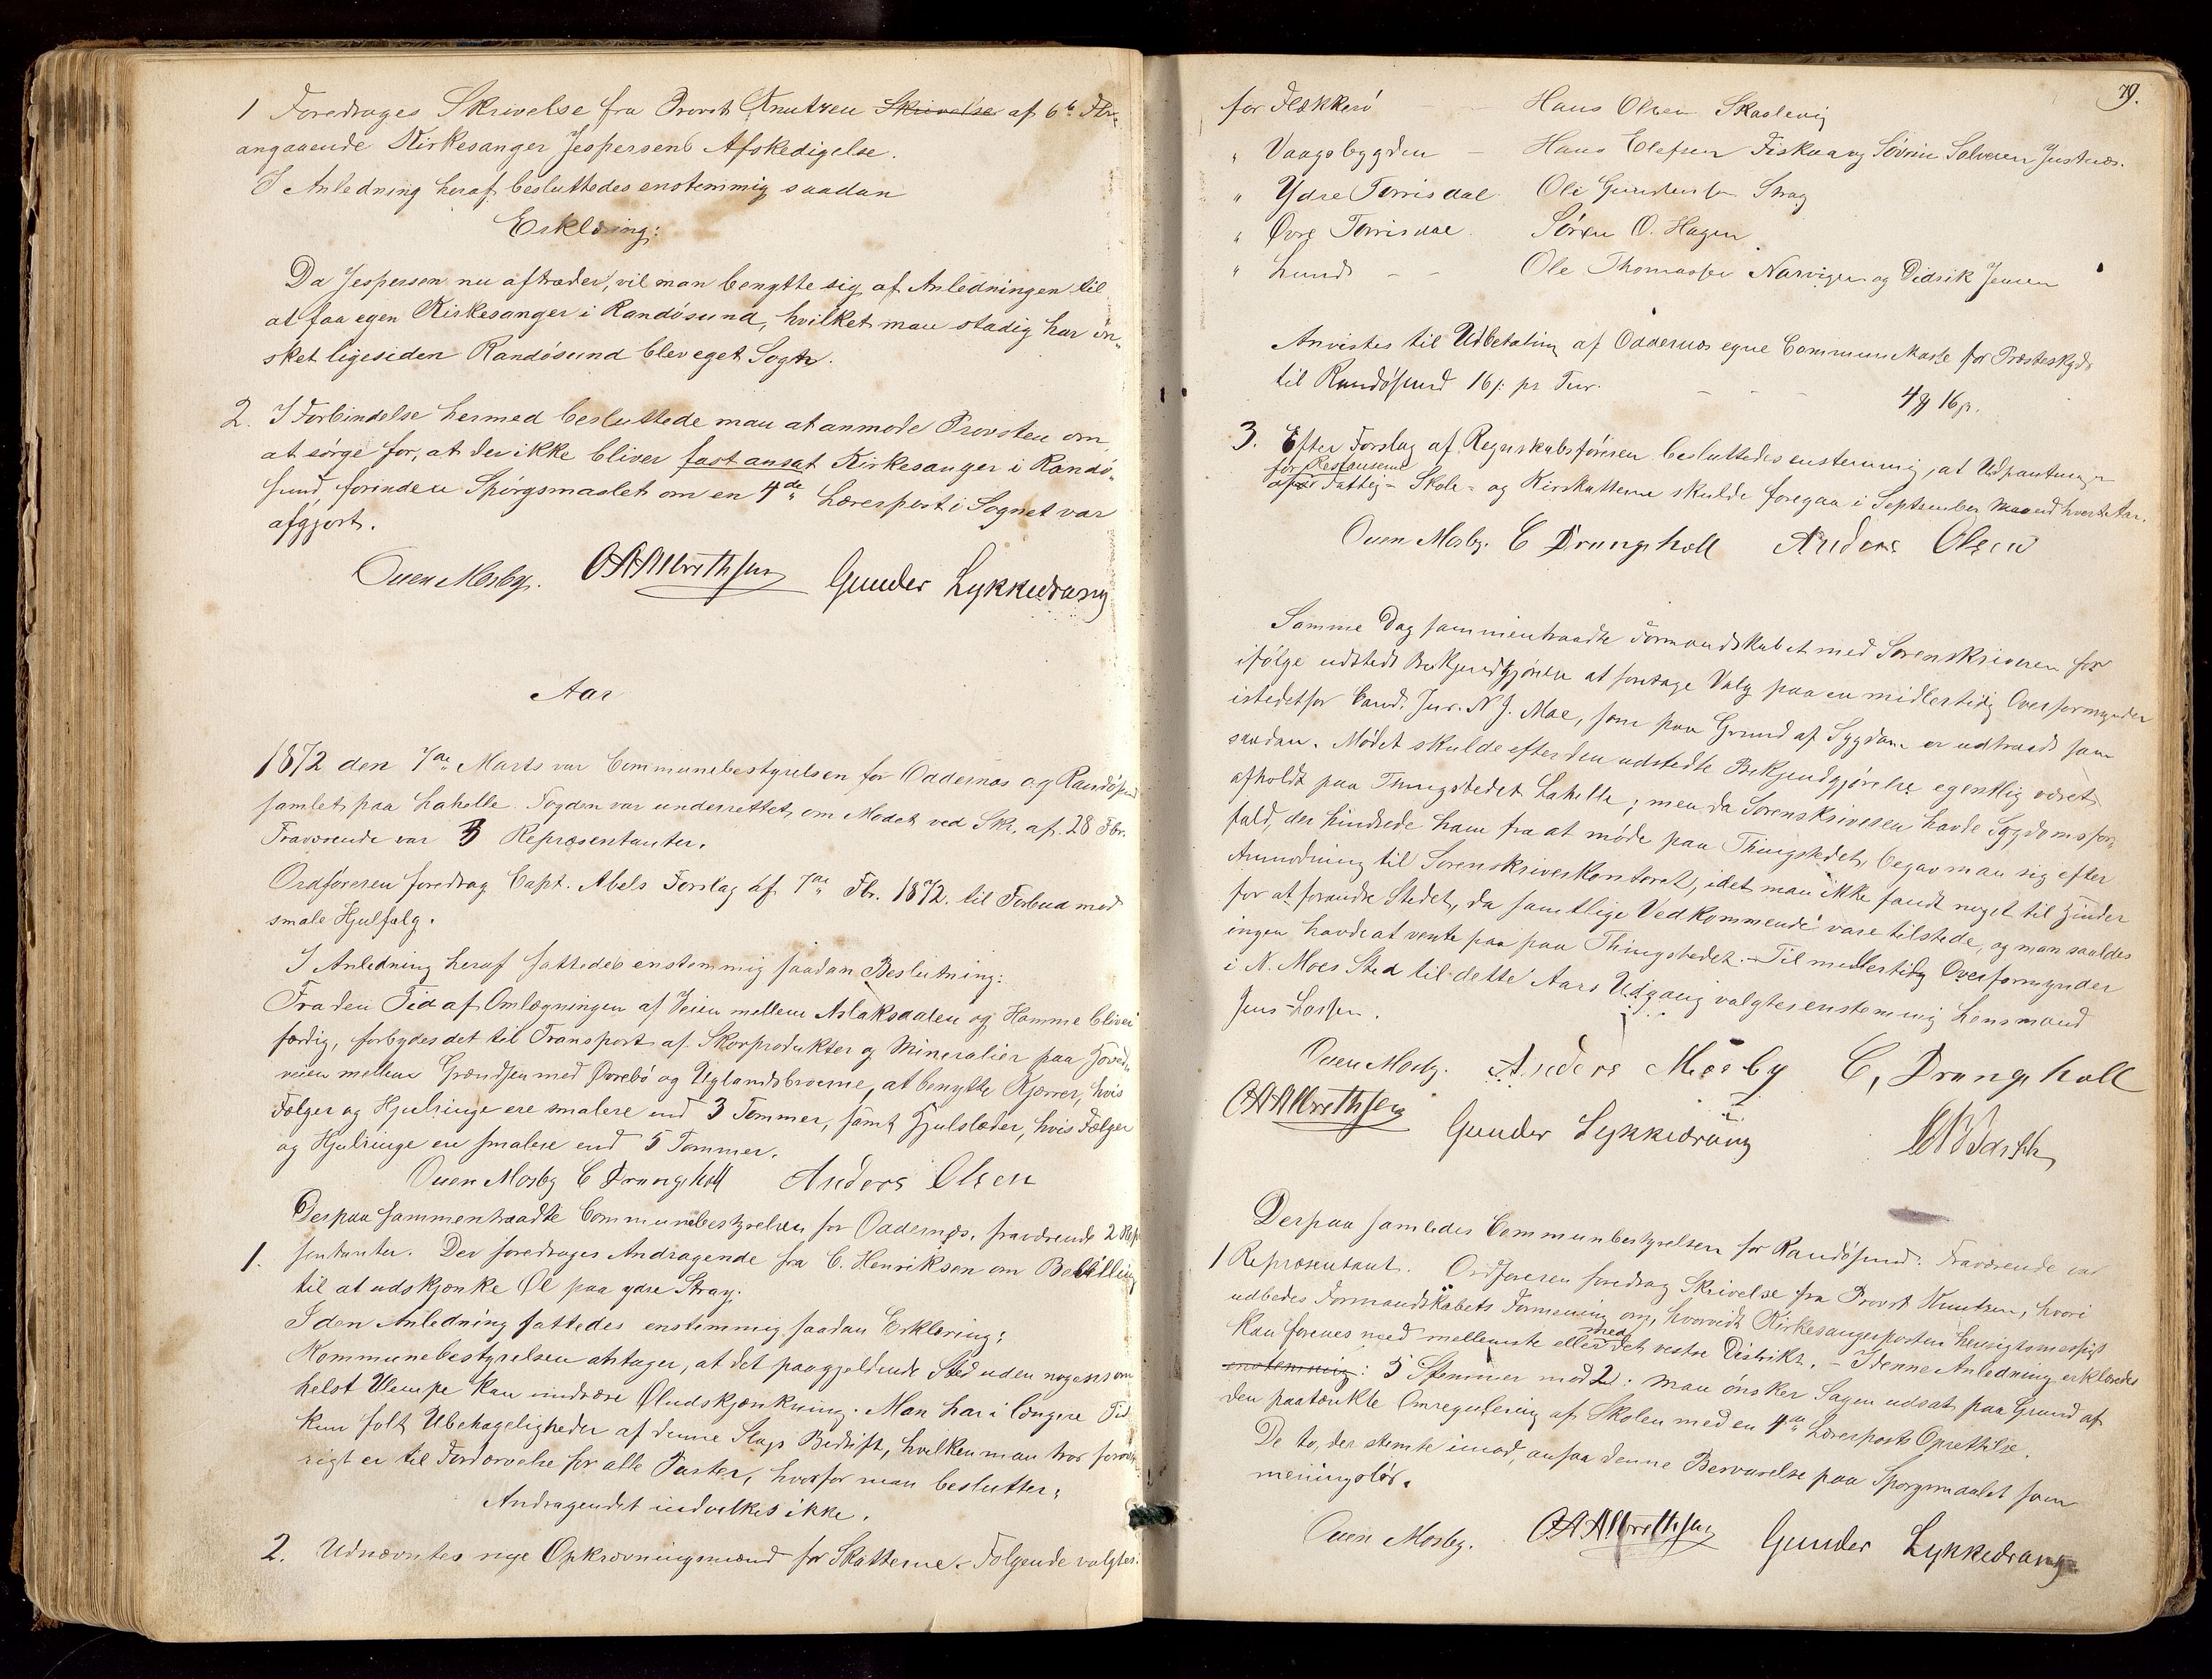 1 Foredroges Skrivelse fra Provst Knutzen Skrivelse af 6te Fbr.
angaaende Kirkesanger Jespersens Afskedigelse.
I Anledning heraf besluttedes enstemmig saadan
Erklæring:
Da Jespersen nu aftræder, vil man benytte sig af Anledningen til
at faa egen Kirkesanger i Randøsund, hvilket man stadig har øn-
sket ligesiden Randøsund blev eget Sogn.
2. I Forbindelse hermed besluttede man at anmode Provsten om
at sørge for, at der ikke bliver fast ansat Kirkesanger i Randø-
sund, forinden Spørgsmaalet om en 4de Lærerpost i Sognet var
afgjort.
Ouen Mosby. OAAlbrethsen Gunder Lykkedrang
Aar
1872 den 7de Marts var Communebestyrelsen for Oddernæs og Randøsund
samlet paa Lahelle. Fogden var underrettet om Mødet ved Skr. af 28 Fbr.
Fraværende var 3 Repræsentanter.
Ordføreren foredrog Capt. Abels Forslag af 7de Fbr. 1872 til Forbud mod
smale Hjulfælg.
I Anledning heraf fattedes enstemmig saadan Beslutning:
Fra den Tid af Omlægningen af Veien mellem Aslaksdalen og Homme bliver
færdig, forbydes det til Transport af Skovprodukter og Mineralier paa Hoved-
veien mellem Grændsen med Øvrebø og Uglandsbroerne, at benytte Kjærrer, hvis
Fælger og Hjulringe ere smalere end 3 Tommer, samt Hjulslæder, hvis Fælger
og Hjulringe ere smalere end 5 Tommer.
Ouen Mosby C Drangsholt Anders Olsen
Derpaa sammentraadte Communebestyrelsen for Oddernæs, fraværende 2 Rep
1. sentanter. Der foredroges Andragende fra C. Henriksen om Bevilling
til at udskjænke Øl paa ydre Stray.
I den Anledning fattedes enstemmig saadan Erklæring:
Kommunebestyrelsen antager, at det paagjeldende Sted uden nogensom
helst Ulempe kan undvære Øludskjænkning. Man har i længere Tid
kun følt Ubehageligheder af denne Slags Bedrift, hvilken man tror forøv-
rigt er til Fordærvelse for alle Parter, hvorfor man beslutter:
Andragendet indvilkes ikke.
2. Udnævntes nye Opkrævningsmænd for Skatterne. Følgende valgtes:
79.
for Flækkerø – Hans Olsen Skaalevig
" Vaagsbygden – Hans Elefsen Fiskaa og Søvrin Salvesen Justnæs.
" Ydre Torrisdal. Ole Gundersen Stray
" Øvre Torrisdal. Søren O. Hagen
" Lund – – Ole Thomassen Narvigen og Didrik Jensen
Anvistes til Udbetaling af Oddernæs egne Communekasse for Præsteskyds
til Randøsund 16 s. pr Tur. – – – 4 16 s.
3. Efter Forslag af Regnskabsføreren besluttedes enstemmig, at Udpantninger
for Restancerne
af Fattig- Skole- og Kirkskatterne skulde foregaa i September Maaned hvert Aar.
Ouen Mosby. C Drangsholt Anders Olsen
Samme Dag sammentraadte Formandskabet med Sorenskriveren for
ifølge udstedt Bekjendtgjørelse at foretage Valg paa en midlertidig Overformynder
istedetfor Cand. Jur. N J. Moe, som paa Grund af Sygdom er udtraadt som
saadan. Mødet skulde efter den udstedte Bekjendtgjørelse egentlig været
afholdt paa Thingstedet Lahelle; men da Sorenskriveren havde Sygdomsfor-
fald, der hindrede ham fra at møde paa Thingstedet, begav man sig efter
Anmodning til Sorenskriverkontoret, idet man ikke fandt noget til Hinder
for at forandre Stedet, da samtlige Vedkommende vare tilstede, og man saaledes
ingen havde at vente paa paa Thingstedet. – Til midlertidig Overformynder
i N. Moes Sted til dette Aars Udgang valgtes enstemmig Lensmand
Jens Lassen.
Ouen Mosby. Anders Mosby C, Drangsholt
OAAlbrethsen Gunder Lykkedrang
Derpaa samledes Communebestyrelsen for Randøsund. Fraværende var
1 Repræsentant. Ordføreren foredrog Skrivelse fra Provst Knutzen, hvori
udbedes Formandskabets Formening om, hvorvidt Kirkesangerposten hensigtsmessigt
kan forenes med mellemste eller med det vestre Distrikt. – I denne Anledning erklæredes
enstemmig: 5 Stemmer mod 2: Man ønsker Sagen udsat paa Grund af
den paatænkte Omregulering af Skolen med en 4de Lærerposts Oprettelse.
De to, der stemte imod, ansaa denne Besvarelse paa Spørgsmaalet som
meningsløs.
Ouen Mosby. OAAlbrethsen Gunder Lykkedrang